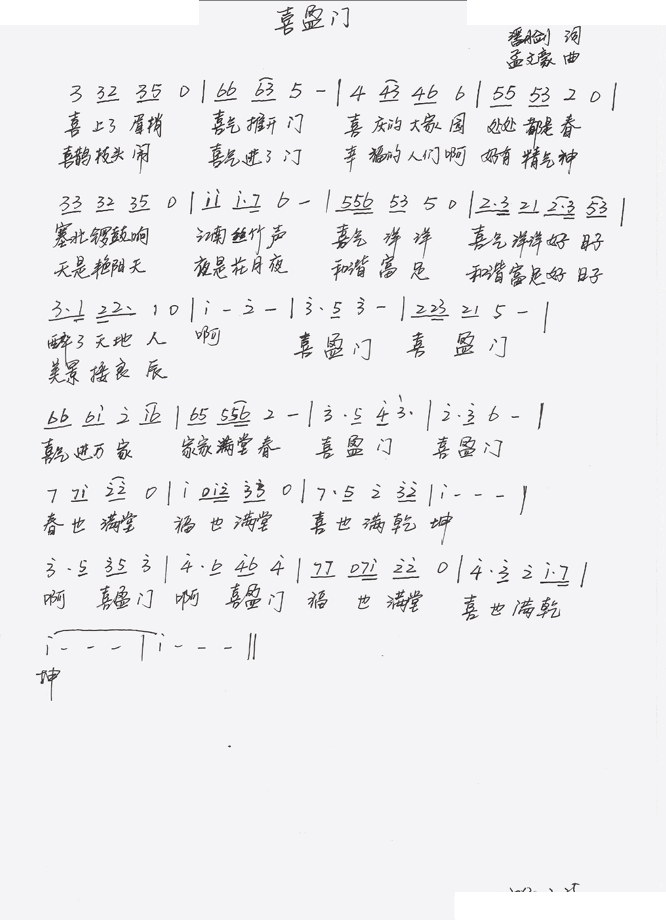 喜盈门
词
孟文豪 曲
3 32 35 0 | 66 63 5 - | 4 43 46 6 | 55 53 2 0 |
喜 上了 眉梢 喜气 推开 门 喜 庆的 大家 园 处处 都是 春
喜鹊 枝头 闹 喜气 进了 门 幸 福的 人们 啊 好有 精气 神
33 32 35 0 | i i i·7 6 - | 556 53 5 0 | 2·3 21 2·3 53 |
塞北 锣鼓 响 江南 丝竹 声 喜气 洋 洋 喜气 洋洋 好 日子
天是 艳阳 天 夜是 花月 夜 和谐 富 足 和谐 富足 好 日子
3·1 22· 1 0 | i - 2 - | 3·5 3 - | 223 21 5 - |
醉了 天地 人 啊 喜 盈门 喜 盈 门
美景 接良 辰
66 6i 2 i6 | 65 556 2 - | 3·5 4 3· | 2·3 6 - |
喜气 进万 家 家家 满堂 春 喜 盈 门 喜 盈门
7 7i 22 0 | i 0i2 33 0 | 7·5 2 32 | i - - - |
春 也 满堂 福 也 满堂 喜 也 满乾 坤
3·5 35 3 | 4·6 46 4 | 77 07i 22 0 | 4·3 2 i·7 |
啊 喜盈门 啊 喜盈门 福 也 满堂 喜 也 满乾
i - - - | i - - - ||
坤